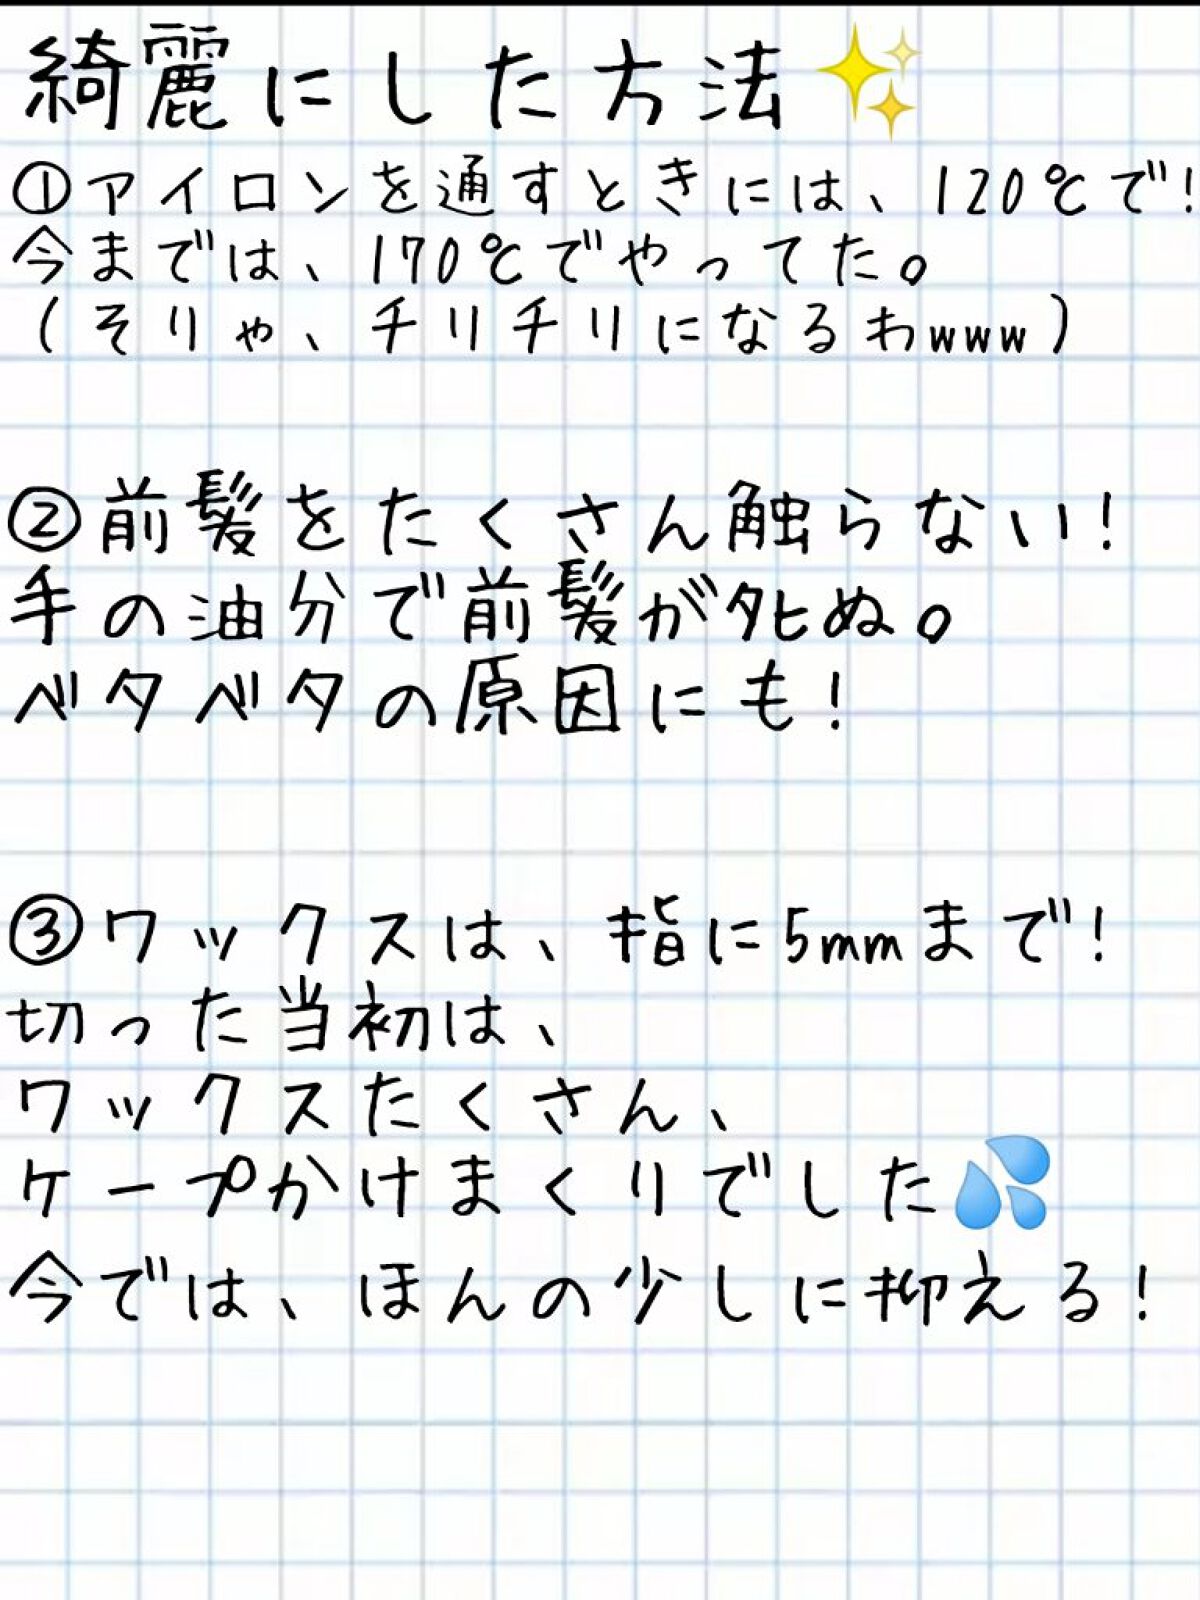 綺麗にした方法✨
①アイロンを通すときには、120℃で!
今までは、170℃でやってた。
(そりゃ、チリチリになるわwww)
②前髪をたくさん触らない!
手の油分で前髪がタヒぬ。
ベタベタの原因にも!
③ワックスは、指に5mmまで!
切った当初は、
ワックスたくさん、
ケープかけまくりでした💦
今では、ほんの少しに抑える!